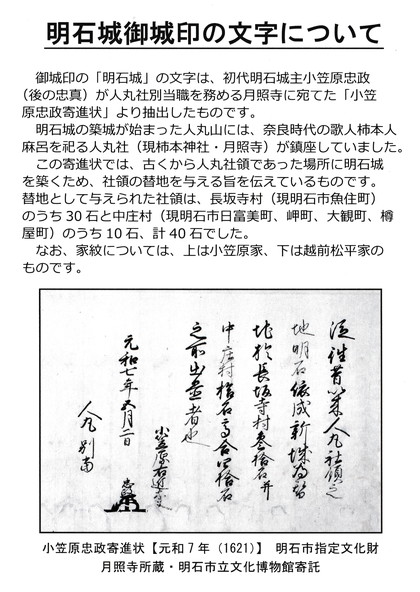 明石城御城印の文字について
御城印の「明石城」の文字は、初代明石城主小笠原忠政
（後の忠真）が人丸社別当職を務める月照寺に宛てた「小笠
原忠政寄進状」より抽出したものです。
明石城の築城が始まった人丸山には、奈良時代の歌人柿本人
麻呂を祀る人丸社（現柿本神社・月照寺）が鎮座していました。
この寄進状では、古くから人丸社領であった場所に明石城
を築くため、社領の替地を与える旨を伝えているものです。
替地として与えられた社領は、長坂寺村（現明石市魚住町）
のうち30石と中庄村（現明石市日富美町、岬町、大観町、樽
屋町）のうち10石、計40石でした。
なお、家紋については、上は小笠原家、下は越前松平家の
ものです。
従往昔以来人丸社領之
地明石依成新城為替
地於長坂寺村参拾石并
中庄村拾石高合四拾石
之所出置者也
小笠原右近
元和七年五月二日
人丸別当
小笠原忠政寄進状【元和7年（1621）】 明石市指定文化財
月照寺所蔵・明石市立文化博物館寄託